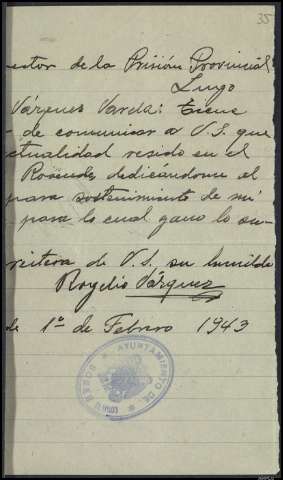 35
ector de la Prisión Provincial
Lugo
Vázquez Varela: Tiene
de comunicar a V.S. que
ctualidad resido en el
Rosende, dedicandome al
para sostenimiento de mi
para lo cual gano lo su-
reitera de V.S. su humilde
Rogelio Vázquez
de 1º de Febrero 1943
AYUNTAMIENTO DE SOBER
(LUGO)